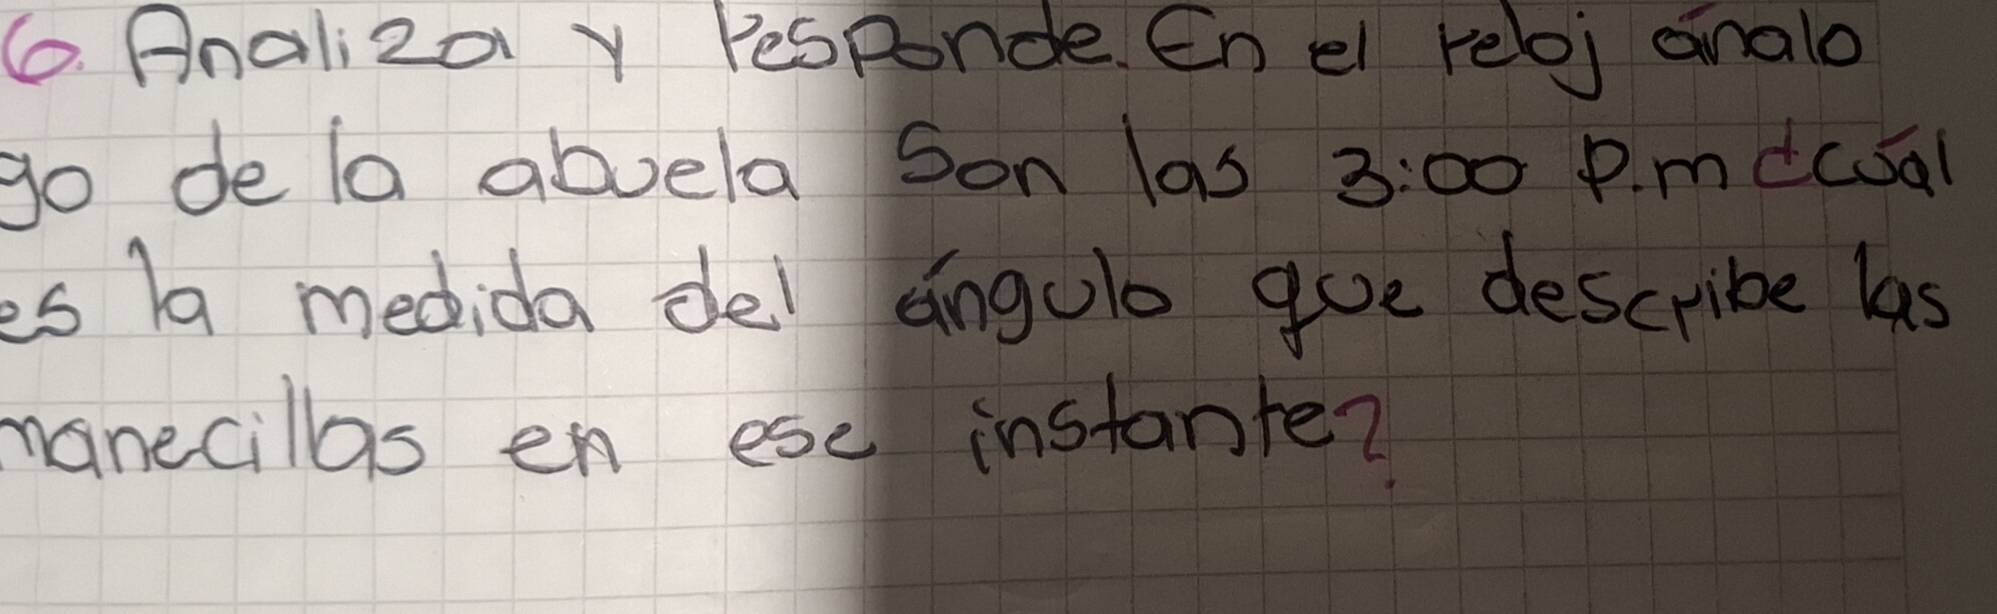 6. Analiza y responde. En el reloj ánalo
go de la abuela son las 3:00 p.m ¿cuál
es la medida del ángulo que describe las
manecillas en ese instante?